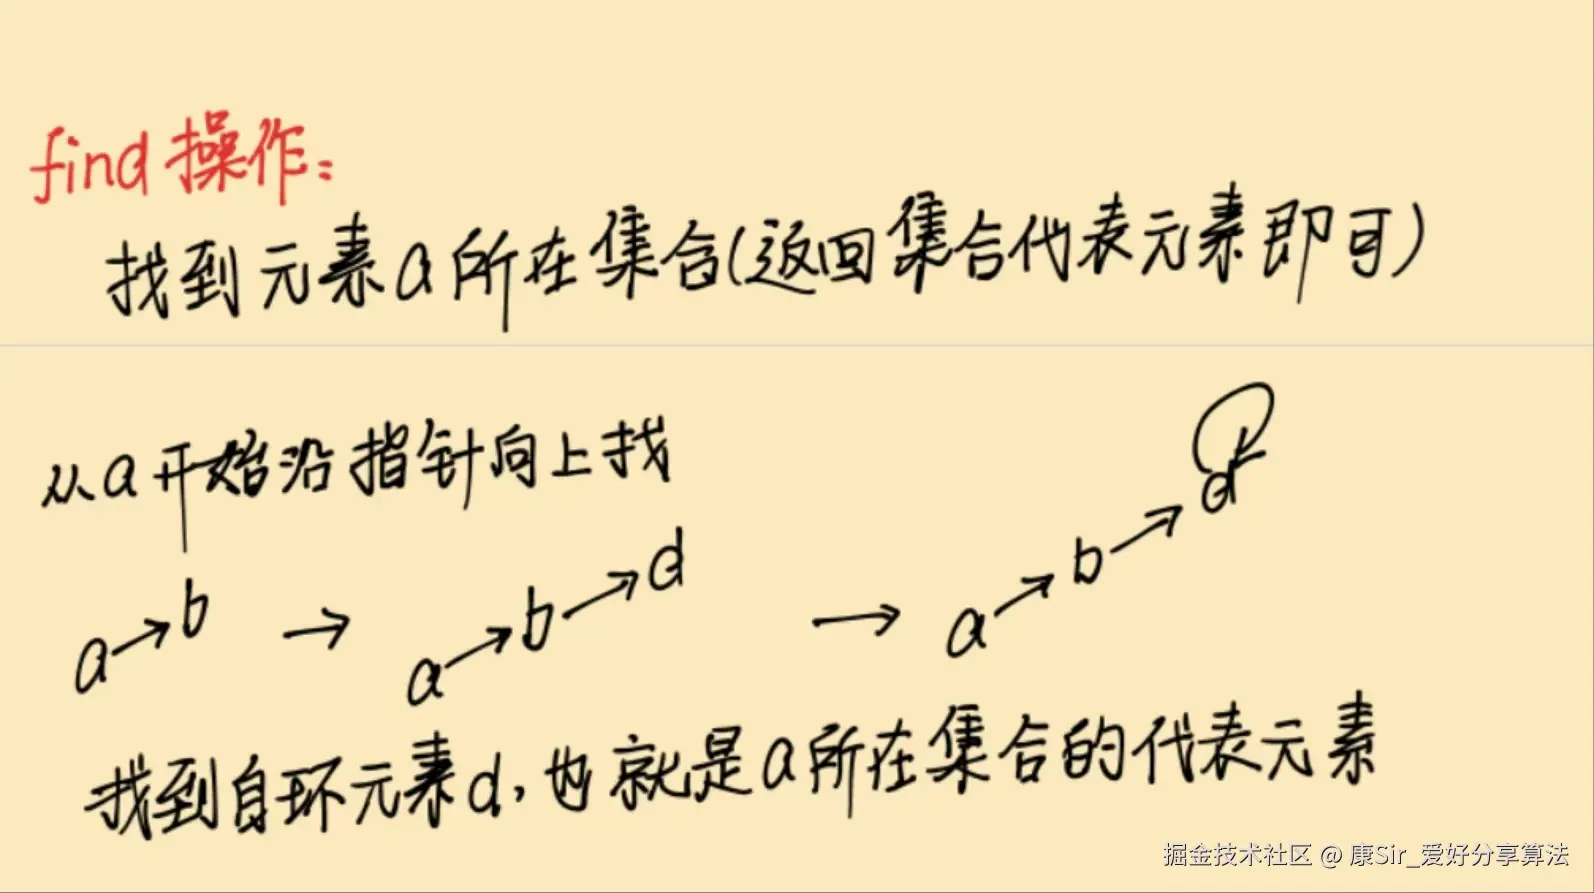 find操作:
找到元素a所在集合(返回集合代表元素即可)
从a开始沿指针向上找
a→b → a→b→d → a→b→d
找到自环元素d,也就是a所在集合的代表元素
掘金技术社区 @ 康Sir_爱好分享算法